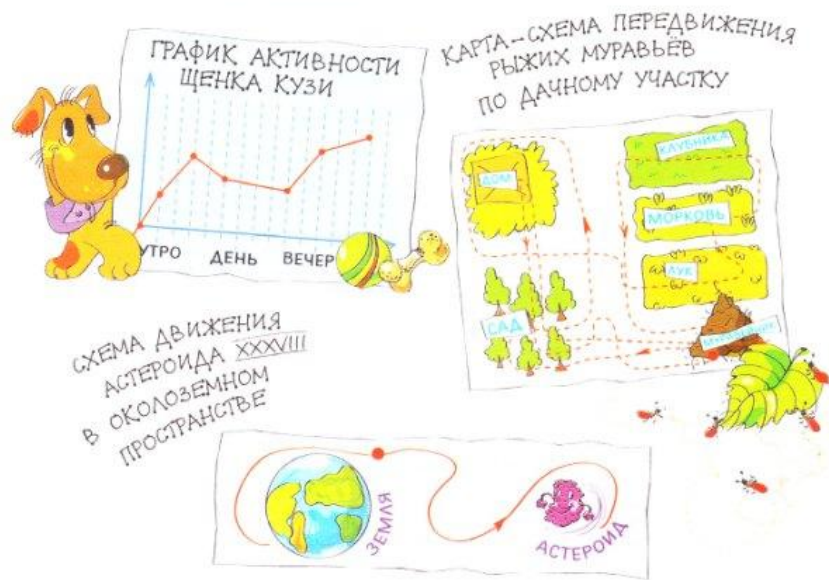 ГРАФИК АКТИВНОСТИ
ЩЕНКА КУЗИ
УТРО ДЕНЬ ВЕЧЕР
КАРТА-СХЕМА ПЕРЕДВИЖЕНИЯ
РЫЖИХ МУРАВЬЁВ
ПО ДАЧНОМУ УЧАСТКУ
ДОМ
КЛУБНИКА
МОРКОВЬ
ЛУК
САД
МУРАВЕЙНИК
СХЕМА ДВИЖЕНИЯ
АСТЕРОИДА XXXVIII
В ОКОЛОЗЕМНОМ
ПРОСТРАНСТВЕ
ЗЕМЛЯ
АСТЕРОИД